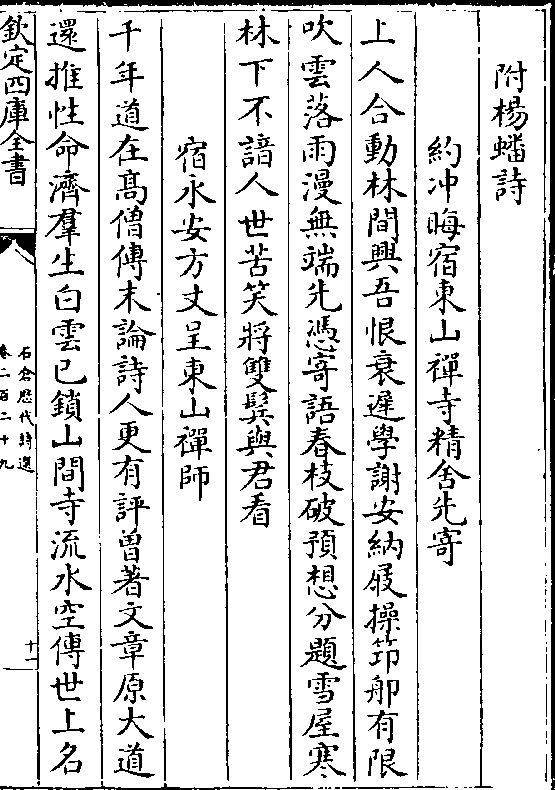 附楊蟠詩
約冲晦宿東山禪寺精舍先寄
上人合動林間興吾恨衰遲學謝安納屐操笻郍有限
吹雲落雨漫無端先憑寄語春枝破預想分題雪屋寒
林下不諳人世苦笑將雙髩與君看
宿永安方丈呈東山禪師
千年道在髙僧傳末論詩人更有評曽著文章原大道
還推性命濟羣生白雲已鎖山間寺流水空傳世上名
欽定四庫全書
石倉歴代詩選
卷二百二十九
十一